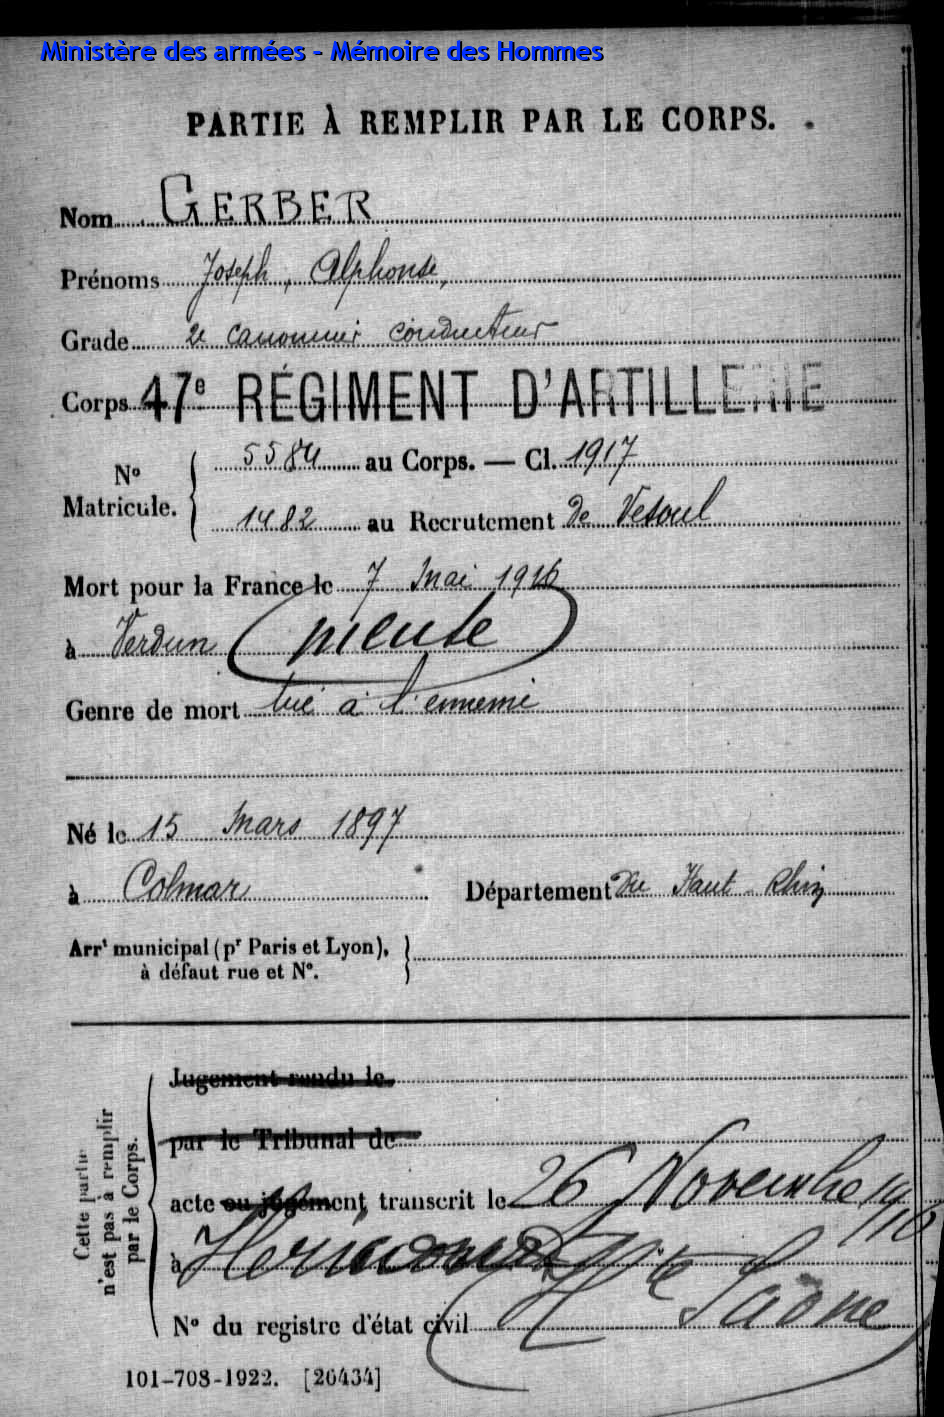 Ministère des armées - Mémoire des Hommes
PARTIE À REMPLIR PAR LE CORPS.
Nom GERBER
Prénoms Joseph, Alphonse,
Grade 2e canonnier conducteur
Corps 47e RÉGIMENT D'ARTILLERIE
No Matricule. { 5584 au Corps. — Cl. 1917
1482 au Recrutement de Vesoul
Mort pour la France le 7 Mai 1916
à Verdun (Meuse)
Genre de mort tué à l'ennemi
Né le 15 Mars 1897
à Colmar Département du Haut-Rhin
Arrt municipal (pr Paris et Lyon),
à défaut rue et No.
Cette partie
n'est pas à remplir
par le Corps.
Jugement rendu le
par le Tribunal de
acte ou jugement transcrit le 26 Novembre 1916
à Héricourt
(Hte Saône)
No du registre d'état civil
101-708-1922. [26434]